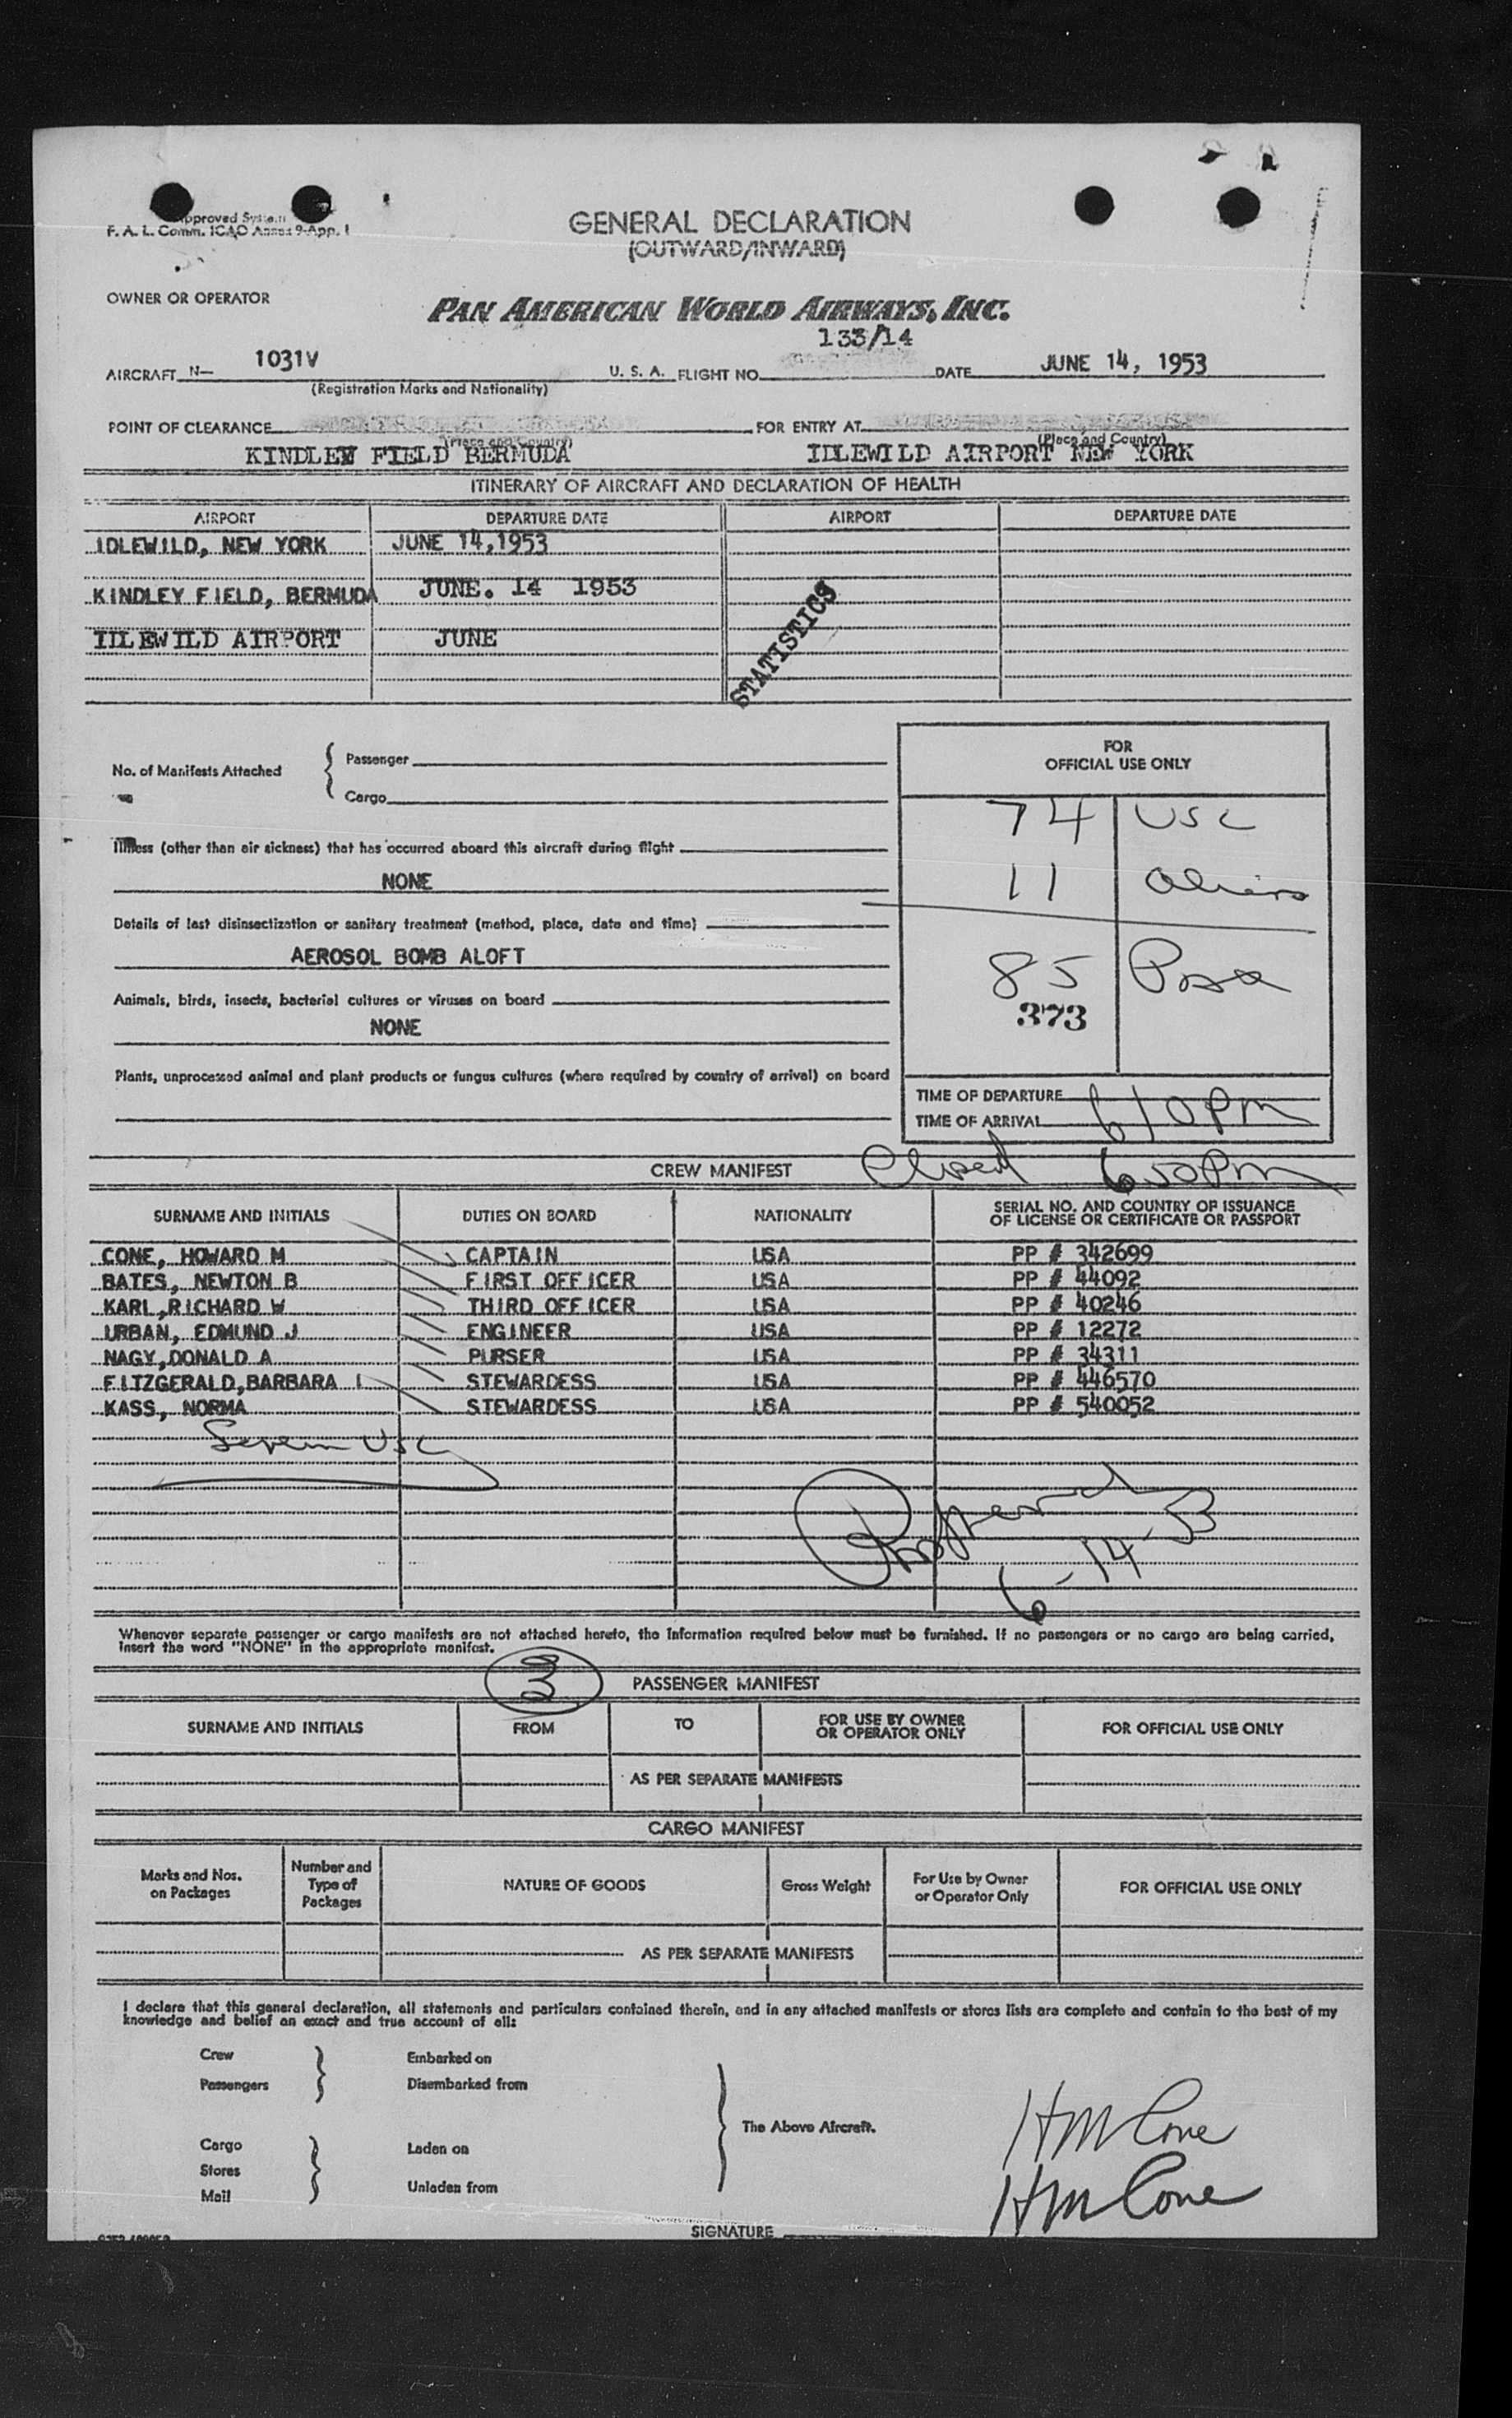 Approved System
F. A. L. Comm. ICAO Annex 9-App. I
GENERAL DECLARATION
(OUTWARD/INWARD)
OWNER OR OPERATOR
PAN AMERICAN WORLD AIRWAYS, INC.
133/14
AIRCRAFT N— 1031V U. S. A. FLIGHT NO. DATE JUNE 14, 1953
(Registration Marks and Nationality)
POINT OF CLEARANCE FOR ENTRY AT
(Place and Country) (Place and Country)
KINDLEY FIELD BERMUDA IDLEWILD AIRPORT NEW YORK
ITINERARY OF AIRCRAFT AND DECLARATION OF HEALTH
AIRPORT DEPARTURE DATE AIRPORT DEPARTURE DATE
IDLEWILD, NEW YORK JUNE 14,1953
KINDLEY FIELD, BERMUDA JUNE. 14 1953
IDLEWILD AIRPORT JUNE
STATISTICS
No. of Manifests Attached
Passenger
Cargo
FOR
OFFICIAL USE ONLY
74 USC
11 Aliens
85 Pass
373
Illness (other than air sickness) that has occurred aboard this aircraft during flight
NONE
Details of last disinsectization or sanitary treatment (method, place, date and time)
AEROSOL BOMB ALOFT
Animals, birds, insects, bacterial cultures or viruses on board
NONE
Plants, unprocessed animal and plant products or fungus cultures (where required by country of arrival) on board
TIME OF DEPARTURE
TIME OF ARRIVAL 610 PM
Closed 650 PM
CREW MANIFEST
SURNAME AND INITIALS DUTIES ON BOARD NATIONALITY SERIAL NO. AND COUNTRY OF ISSUANCE
OF LICENSE OR CERTIFICATE OR PASSPORT
CONE, HOWARD M CAPTAIN USA PP # 342699
BATES, NEWTON B FIRST OFFICER USA PP # 44092
KARL,RICHARD W THIRD OFFICER USA PP # 40246
URBAN, EDMUND J ENGINEER USA PP # 12272
NAGY,DONALD A PURSER USA PP # 34311
FITZGERALD,BARBARA I STEWARDESS USA PP # 446570
KASS, NORMA STEWARDESS USA PP # 540052
Seven USC
6-14-53
Whenever separate passenger or cargo manifests are not attached hereto, the information required below must be furnished. If no passengers or no cargo are being carried,
insert the word "NONE" in the appropriate manifest.
3
PASSENGER MANIFEST
SURNAME AND INITIALS FROM TO FOR USE BY OWNER
OR OPERATOR ONLY FOR OFFICIAL USE ONLY
AS PER SEPARATE MANIFESTS
CARGO MANIFEST
Marks and Nos.
on Packages
Number and
Type of
Packages
NATURE OF GOODS
Gross Weight
For Use by Owner
or Operator Only
FOR OFFICIAL USE ONLY
AS PER SEPARATE MANIFESTS
I declare that this general declaration, all statements and particulars contained therein, and in any attached manifests or stores lists are complete and contain to the best of my
knowledge and belief an exact and true account of all:
Crew Embarked on
Passengers Disembarked from
The Above Aircraft.
Cargo Laden on
Stores
Mail Unladen from
HM Cone
HM Cone
SIGNATURE